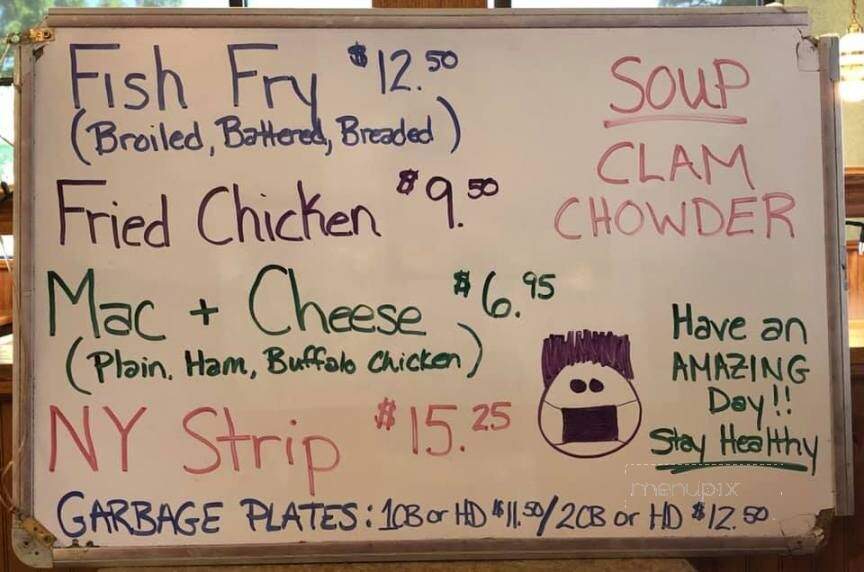 Fish Fry $12.50
(Broiled, Battered, Breaded)
Fried Chicken $9.50
Mac + Cheese $6.95
(Plain, Ham, Buffalo Chicken)
NY Strip $15.25
GARBAGE PLATES: 1CB or HD $11.50/2CB or HD $12.50
SOUP
CLAM
CHOWDER
Have an
AMAZING
Day!!
Stay Healthy
menupix